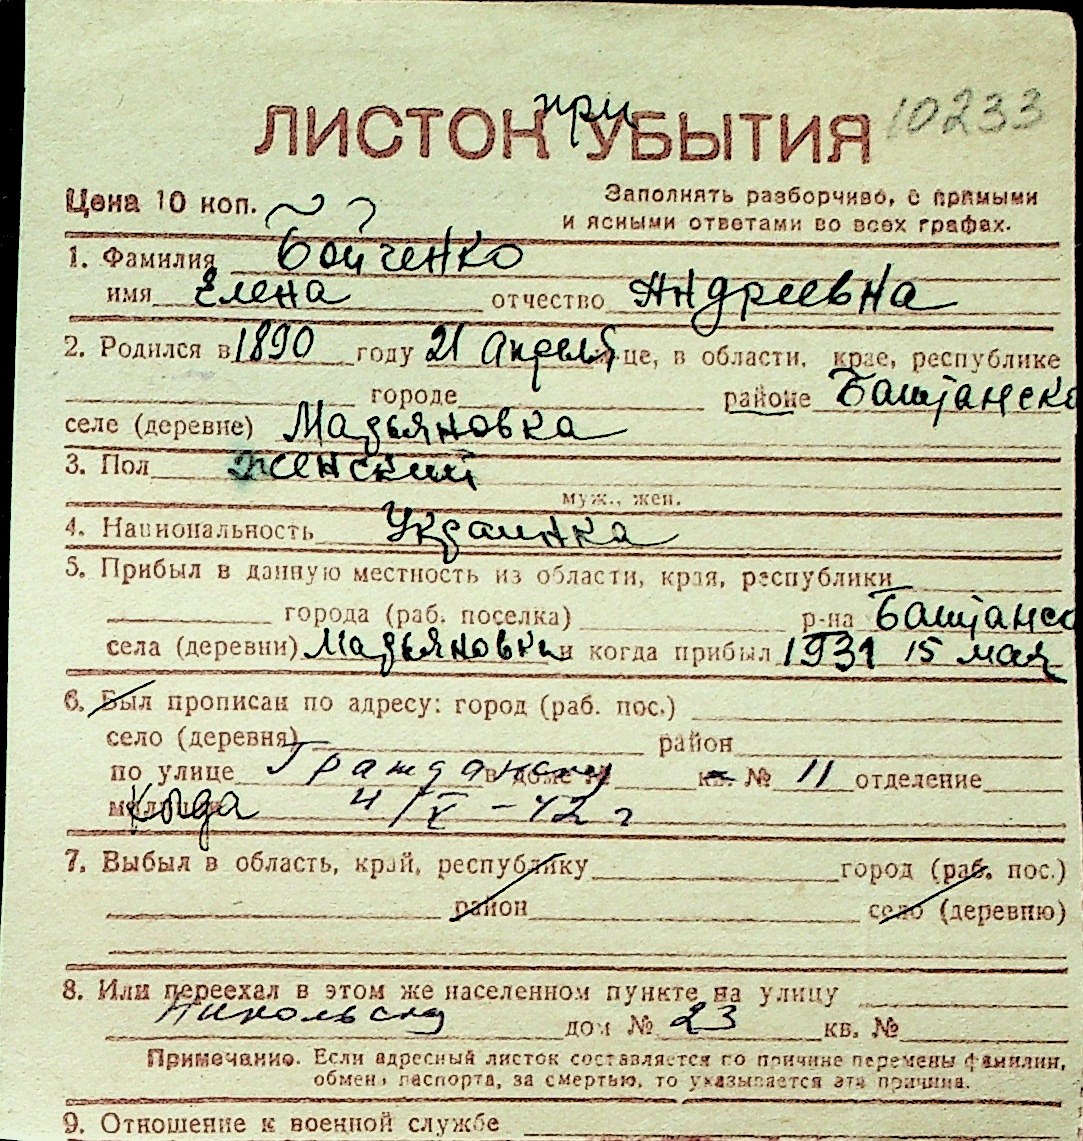 при 10233
ЛИСТОК УБЫТИЯ
Цена 10 коп. Заполнять разборчиво, с прямыми
и ясными ответами во всех графах.
1. Фамилия Бойченко
имя Елена отчество Андреевна
2. Родился в 1890 году 21 Апреля це, в области, крае, республике
городе районе Баштанско
селе (деревне) Мадьяновка
3. Пол женский
муж., жен.
4. Национальность Украинка
5. Прибыл в данную местность из области, края, республики
города (раб. поселка) р-на Баштанс
села (деревни) Мадьяновки и когда прибыл 1931 15 мая
6. Был прописан по адресу: город (раб. пос.)
село (деревня) район
по улице Гражданску в доме № кв. № 11 отделение
Когда 4/X - 42 г
7. Выбыл в область, край, республику город (раб. пос.)
район село (деревню)
8. Или переехал в этом же населенном пункте на улицу
Никольску дом № 23 кв. №
Примечание. Если адресный листок составляется по причине перемены фамилии,
обмена паспорта, за смертью, то указывается эта причина.
9. Отношение к военной службе